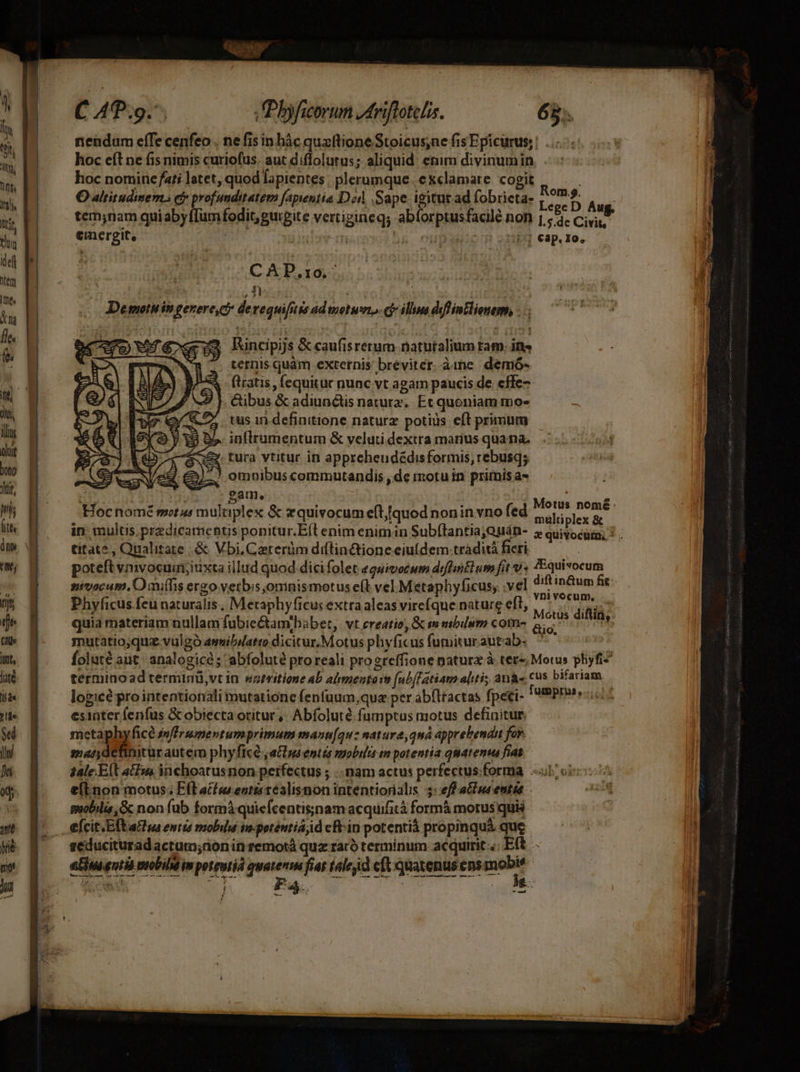 CAP.9. Phyſicorum Ariſtotelis. 65.
nendum eſſe cenſeo. ne ſis in hâc quæſtione Stoicus, ne ſis Epicurus;
hoc eſt ne ſis nimis curioſus. aut diſſolutus; aliquid enim divinum in
hoc nomine fati latet, quod ſapientes plerumque exclamare cogit
O altitudinem & profunditatem ſapientiæ Dei! Sape igitur ad ſobrieta-
Rom. 9.
tem; nam qui abyſſum fodit, gurgite vertiginéq; abſorptus facilè non
Lege D. Aug.
l. 5. de Civit.
emergit.
cap. 10.
CAP. 10.
De motu in genere, & de requiſitis ad motum, & illius diſtinctionem.
PRincipijs & cauſis rerum naturalium tam in-
ternis quàm externis breviter à me demó-
ſtratis, ſequitur nunc vt agam paucis de effe-
ctibus & adiunctis naturæ. Et quoniam mo-
tus in definitione naturæ potiùs eſt primum
inſtrumentum & veluti dextra manus qua na-
tura vtitur in apprehendédis formis, rebusq;
omnibus commutandis, de motu in primis a-
gam.
Hoc nomé motus multiplex & æquivocum eſt, quod non in vno ſed
Motus nomé
multiplex &
in multis prædicamentis ponitur. Eſt enim enim in Subſtantia, Quan-
æquivocum.
titate, Qualitate & Vbi. Cæterùm diſtinctione eiuſdem traditâ fieri
poteſt vnivocum, iuxta illud quod dici ſolet æquivocum diſtinctum fit v-
Æquivocum
nivocum. Omiſſis ergo verbis, omnis motus eſt vel Metaphyſicus, vel
diſtinctum fit
Phyſicus ſeu naturalis. Metaphyſicus extra aleas vireſque naturæ eſt,
vnivocum.
quia materiam nullam ſubiectam habet, vt creatio, & in nibilum com-
Motus diſtin-
ctio.
mutatio, quæ vulgò annibilatio dicitur. Motus phyſicus ſumitur aut ab-
ſoluté aut analogicè; abſoluté pro reali progreſſione naturæ à ter-
Motus phyſi-
termino ad terminú, vt in nutritione ab alimentoru ſubſtatiam aliti; ana-
cus bifariam
logicè pro intentionali mutatione ſenſuum, quæ per abſtractas ſpeci-
ſumptus.
es inter ſenſus & obiecta oritur. Abſoluté ſumptus motus definitur
metaphyſicè inſtrumentum primum manuſque naturæ, quâ apprehendit for-
mam definitur autem phyſicè, actus entis mobilis in potentia quatenus fiat
tale. Eſt actus inchoatus non perfectus; nam actus perfectus forma
eſt non motus; Eſt actus entis realis non intentionalis; eſt actus entis
mobilis, & non ſub formâ quieſcentis; nam acquiſitâ formâ motus quiæ
eſcit. Eſt actus entis mobilis in potentiâ, id eſt in potentiâ propinquâ que
reducitur ad actum; non in remotâ quæ rarò terminum acquirit. Eſt
actus entis mobilis in potentiâ quatenus fiat tale, id eſt quatenus ens mobi-
F 4. le